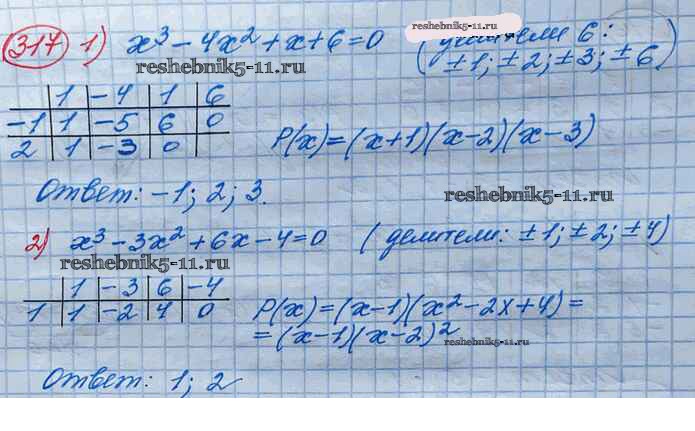 317 1) x³ - 4x² + x + 6 = 0 (делители 6:
± 1; ± 2; ± 3; ± 6)
reshebnik5-11.ru
reshebnik5-11.ru
1 -4 1 6
-1 1 -5 6 0
2 1 -3 0
P(x) = (x+1)(x-2)(x-3)
Ответ: -1; 2; 3.
reshebnik5-11.ru
2) x³ - 3x² + 6x - 4 = 0 (делители: ± 1; ± 2; ± 4)
reshebnik5-11.ru
1 -3 6 -4
1 1 -2 4 0
P(x) = (x-1)(x² - 2x + 4) =
= (x-1)(x-2)²
reshebnik5-11.ru
Ответ: 1; 2